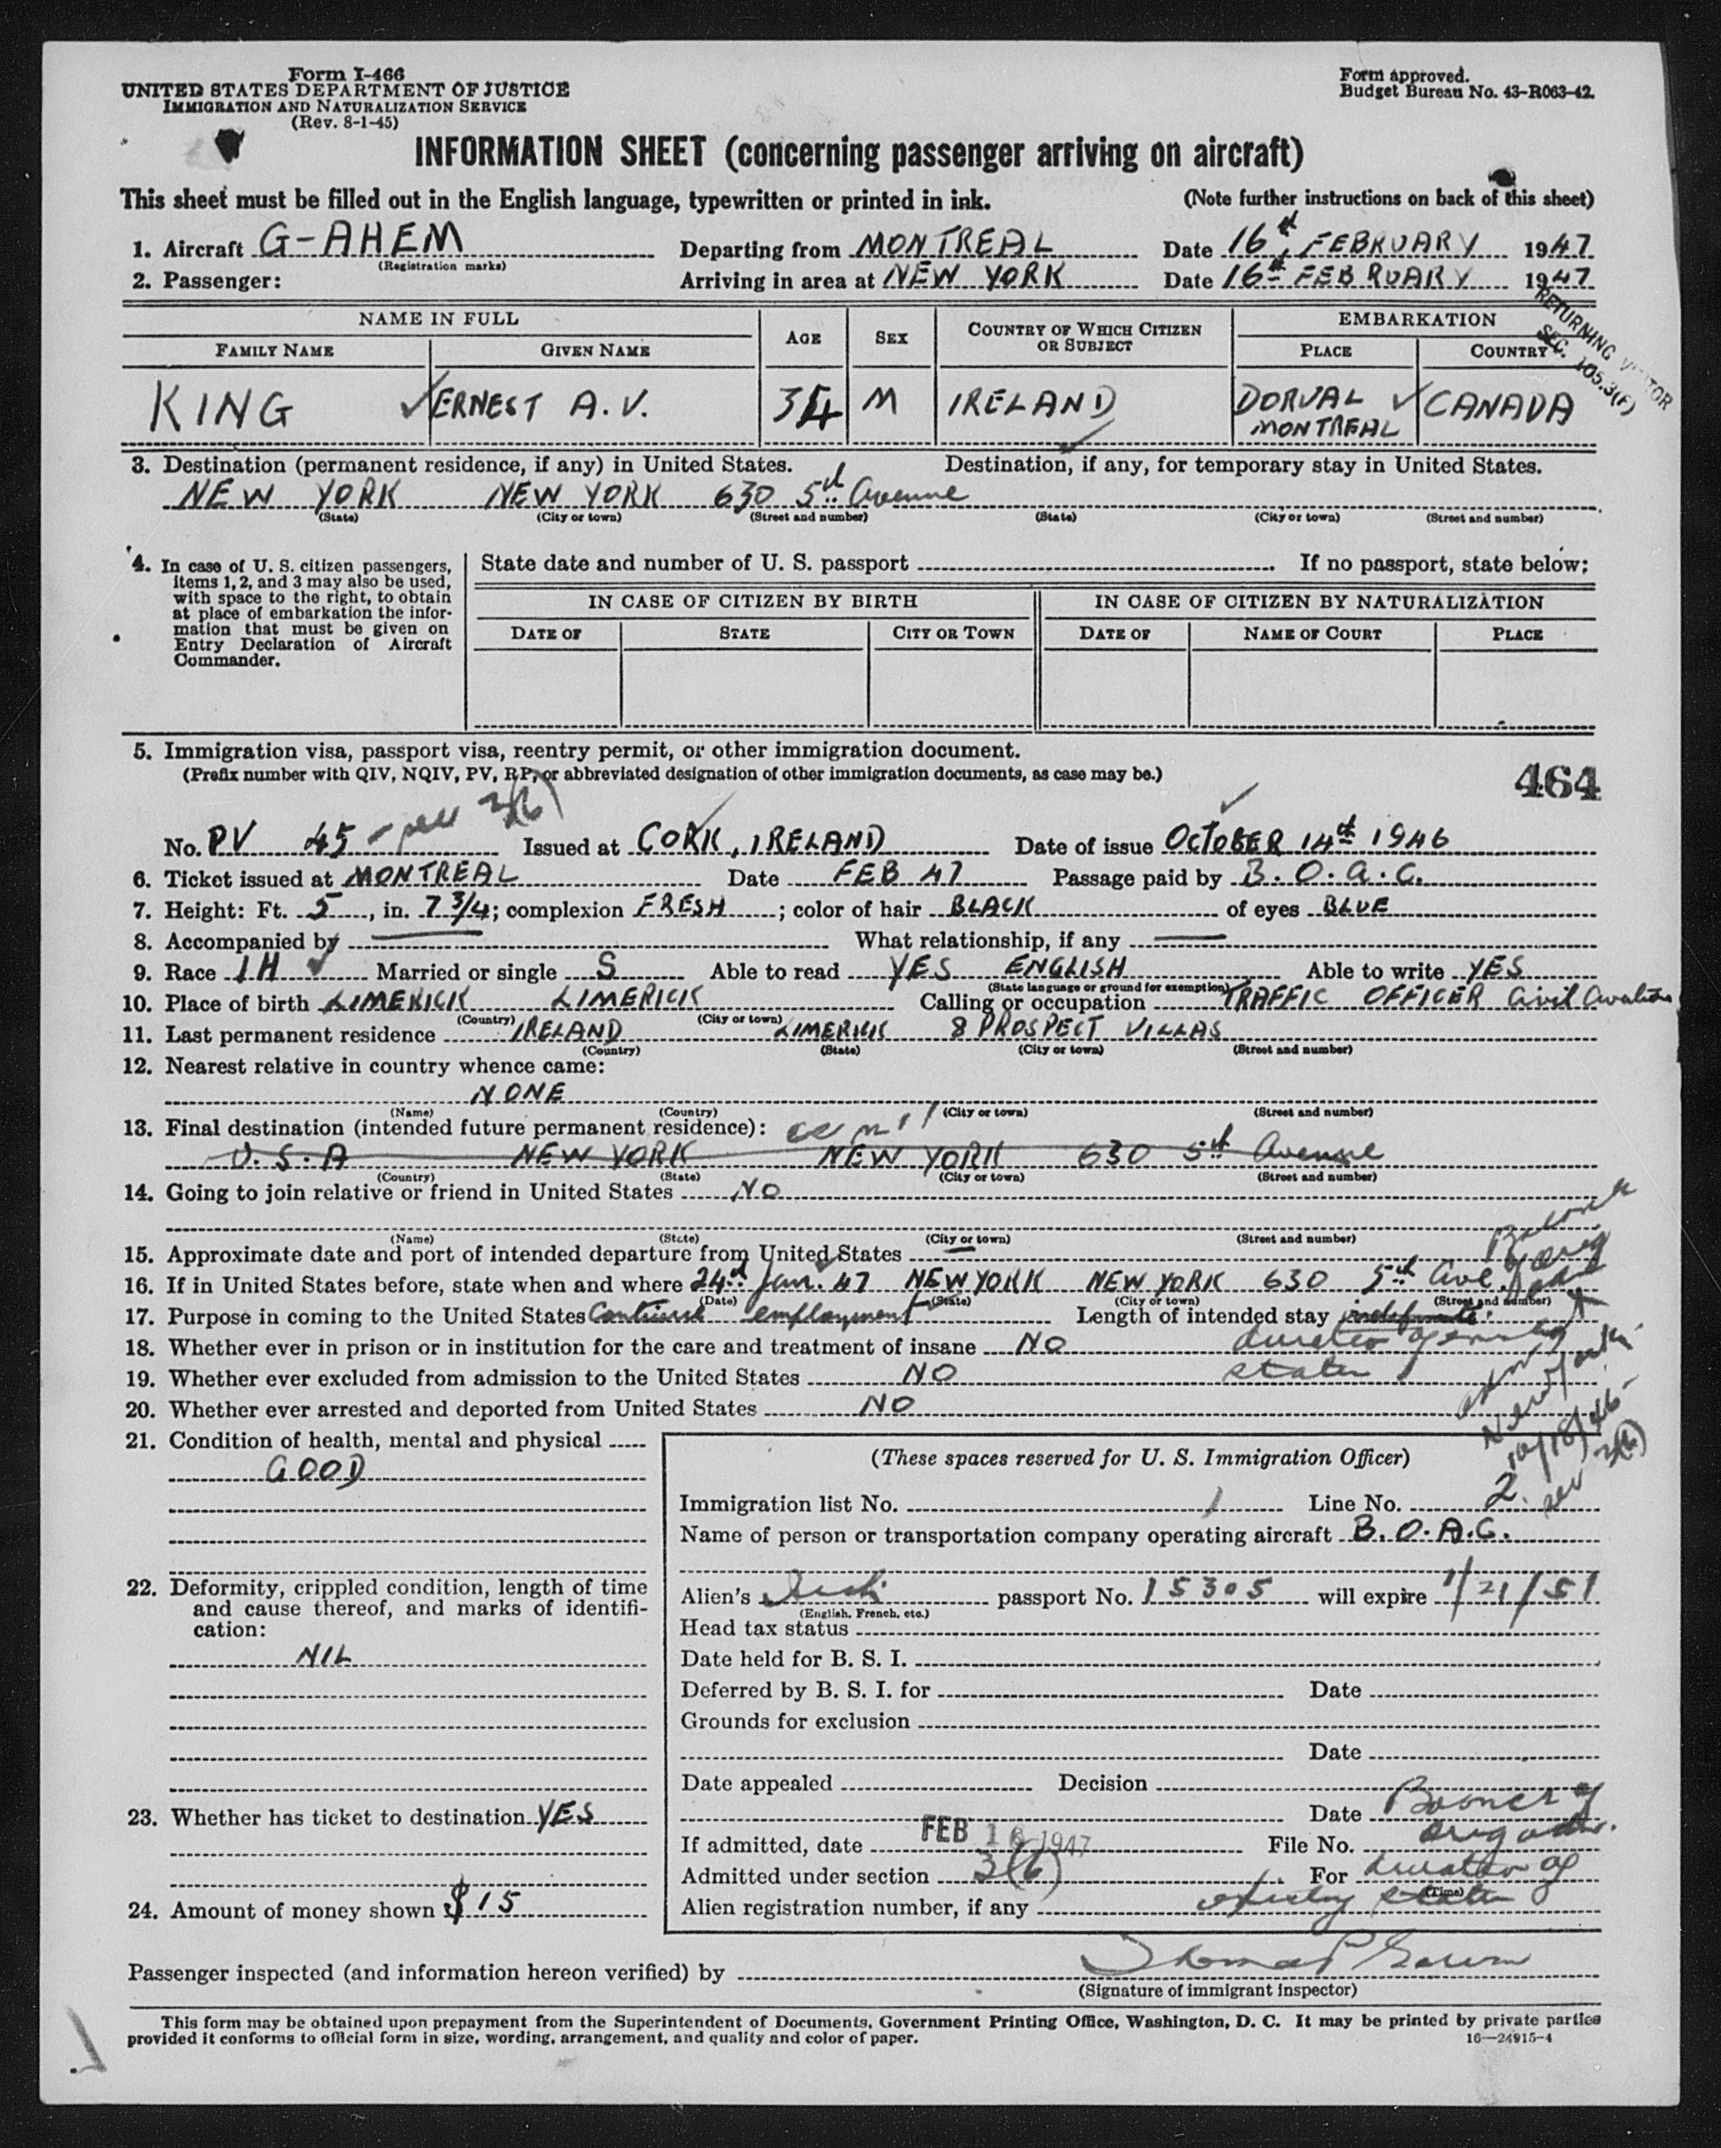 Form I-466
UNITED STATES DEPARTMENT OF JUSTICE
IMMIGRATION AND NATURALIZATION SERVICE
(Rev. 8-1-45)
Form approved.
Budget Bureau No. 43-R063-42.
INFORMATION SHEET (concerning passenger arriving on aircraft)
This sheet must be filled out in the English language, typewritten or printed in ink. (Note further instructions on back of this sheet)
1. Aircraft G-AHEM Departing from MONTREAL Date 16th FEBRUARY 1947
(Registration marks)
2. Passenger: Arriving in area at NEW YORK Date 16th FEBRUARY 1947
RETURNING VISITOR
SEC. 105.3(F)
NAME IN FULL AGE SEX COUNTRY OF WHICH CITIZEN OR SUBJECT EMBARKATION
FAMILY NAME GIVEN NAME PLACE COUNTRY
KING ERNEST A. V. 34 M IRELAND DORVAL MONTREAL CANADA
3. Destination (permanent residence, if any) in United States. Destination, if any, for temporary stay in United States.
NEW YORK NEW YORK 630 5th Avenue
(State) (City or town) (Street and number) (State) (City or town) (Street and number)
4. In case of U. S. citizen passengers, items 1, 2, and 3 may also be used, with space to the right, to obtain at place of embarkation the information that must be given on Entry Declaration of Aircraft Commander.
State date and number of U. S. passport . If no passport, state below:
IN CASE OF CITIZEN BY BIRTH IN CASE OF CITIZEN BY NATURALIZATION
DATE OF STATE CITY OR TOWN DATE OF NAME OF COURT PLACE
5. Immigration visa, passport visa, reentry permit, or other immigration document.
(Prefix number with QIV, NQIV, PV, RP, or abbreviated designation of other immigration documents, as case may be.)
464
No. PV 45 - 3(6) Issued at CORK, IRELAND Date of issue OCTOBER 14th 1946
6. Ticket issued at MONTREAL Date FEB 47 Passage paid by B.O.A.C.
7. Height: Ft. 5, in. 7 3/4; complexion FRESH; color of hair BLACK of eyes BLUE
8. Accompanied by — What relationship, if any —
9. Race IH Married or single S Able to read YES ENGLISH Able to write YES
(State language or ground for exemption)
10. Place of birth LIMERICK LIMERICK Calling or occupation TRAFFIC OFFICER Civil Aviation
(Country) (City or town)
11. Last permanent residence IRELAND LIMERICK 8 PROSPECT VILLAS
(Country) (State) (City or town) (Street and number)
12. Nearest relative in country whence came:
NONE
(Name) (Country) (City or town) (Street and number)
13. Final destination (intended future permanent residence):
U.S.A NEW YORK NEW YORK 630 5th Avenue
(Country) (State) (City or town) (Street and number)
14. Going to join relative or friend in United States NO
(Name) (State) (City or town) (Street and number)
15. Approximate date and port of intended departure from United States —
16. If in United States before, state when and where 24th Jan. 47 NEW YORK NEW YORK 630 5th Ave.
(Date) (State) (City or town) (Street and number)
17. Purpose in coming to the United States Continue employment Length of intended stay indefinite
18. Whether ever in prison or in institution for the care and treatment of insane NO
19. Whether ever excluded from admission to the United States NO
20. Whether ever arrested and deported from United States NO
New York
10/18/46
3(6)
21. Condition of health, mental and physical
GOOD
22. Deformity, crippled condition, length of time and cause thereof, and marks of identification:
NIL
23. Whether has ticket to destination YES
24. Amount of money shown $15
(These spaces reserved for U. S. Immigration Officer)
Immigration list No. 1 Line No. 2
Name of person or transportation company operating aircraft B.O.A.C.
Alien's Irish passport No. 15305 will expire 1/21/51
(English, French, etc.)
Head tax status
Date held for B. S. I.
Deferred by B. S. I. for Date
Grounds for exclusion
Date
Date appealed Decision
Date
If admitted, date FEB 16 1947 File No.
Admitted under section 3(6) For duration of
(Time)
Alien registration number, if any
Passenger inspected (and information hereon verified) by
(Signature of immigrant inspector)
This form may be obtained upon prepayment from the Superintendent of Documents, Government Printing Office, Washington, D. C. It may be printed by private parties
provided it conforms to official form in size, wording, arrangement, and quality and color of paper. 16—24915-4